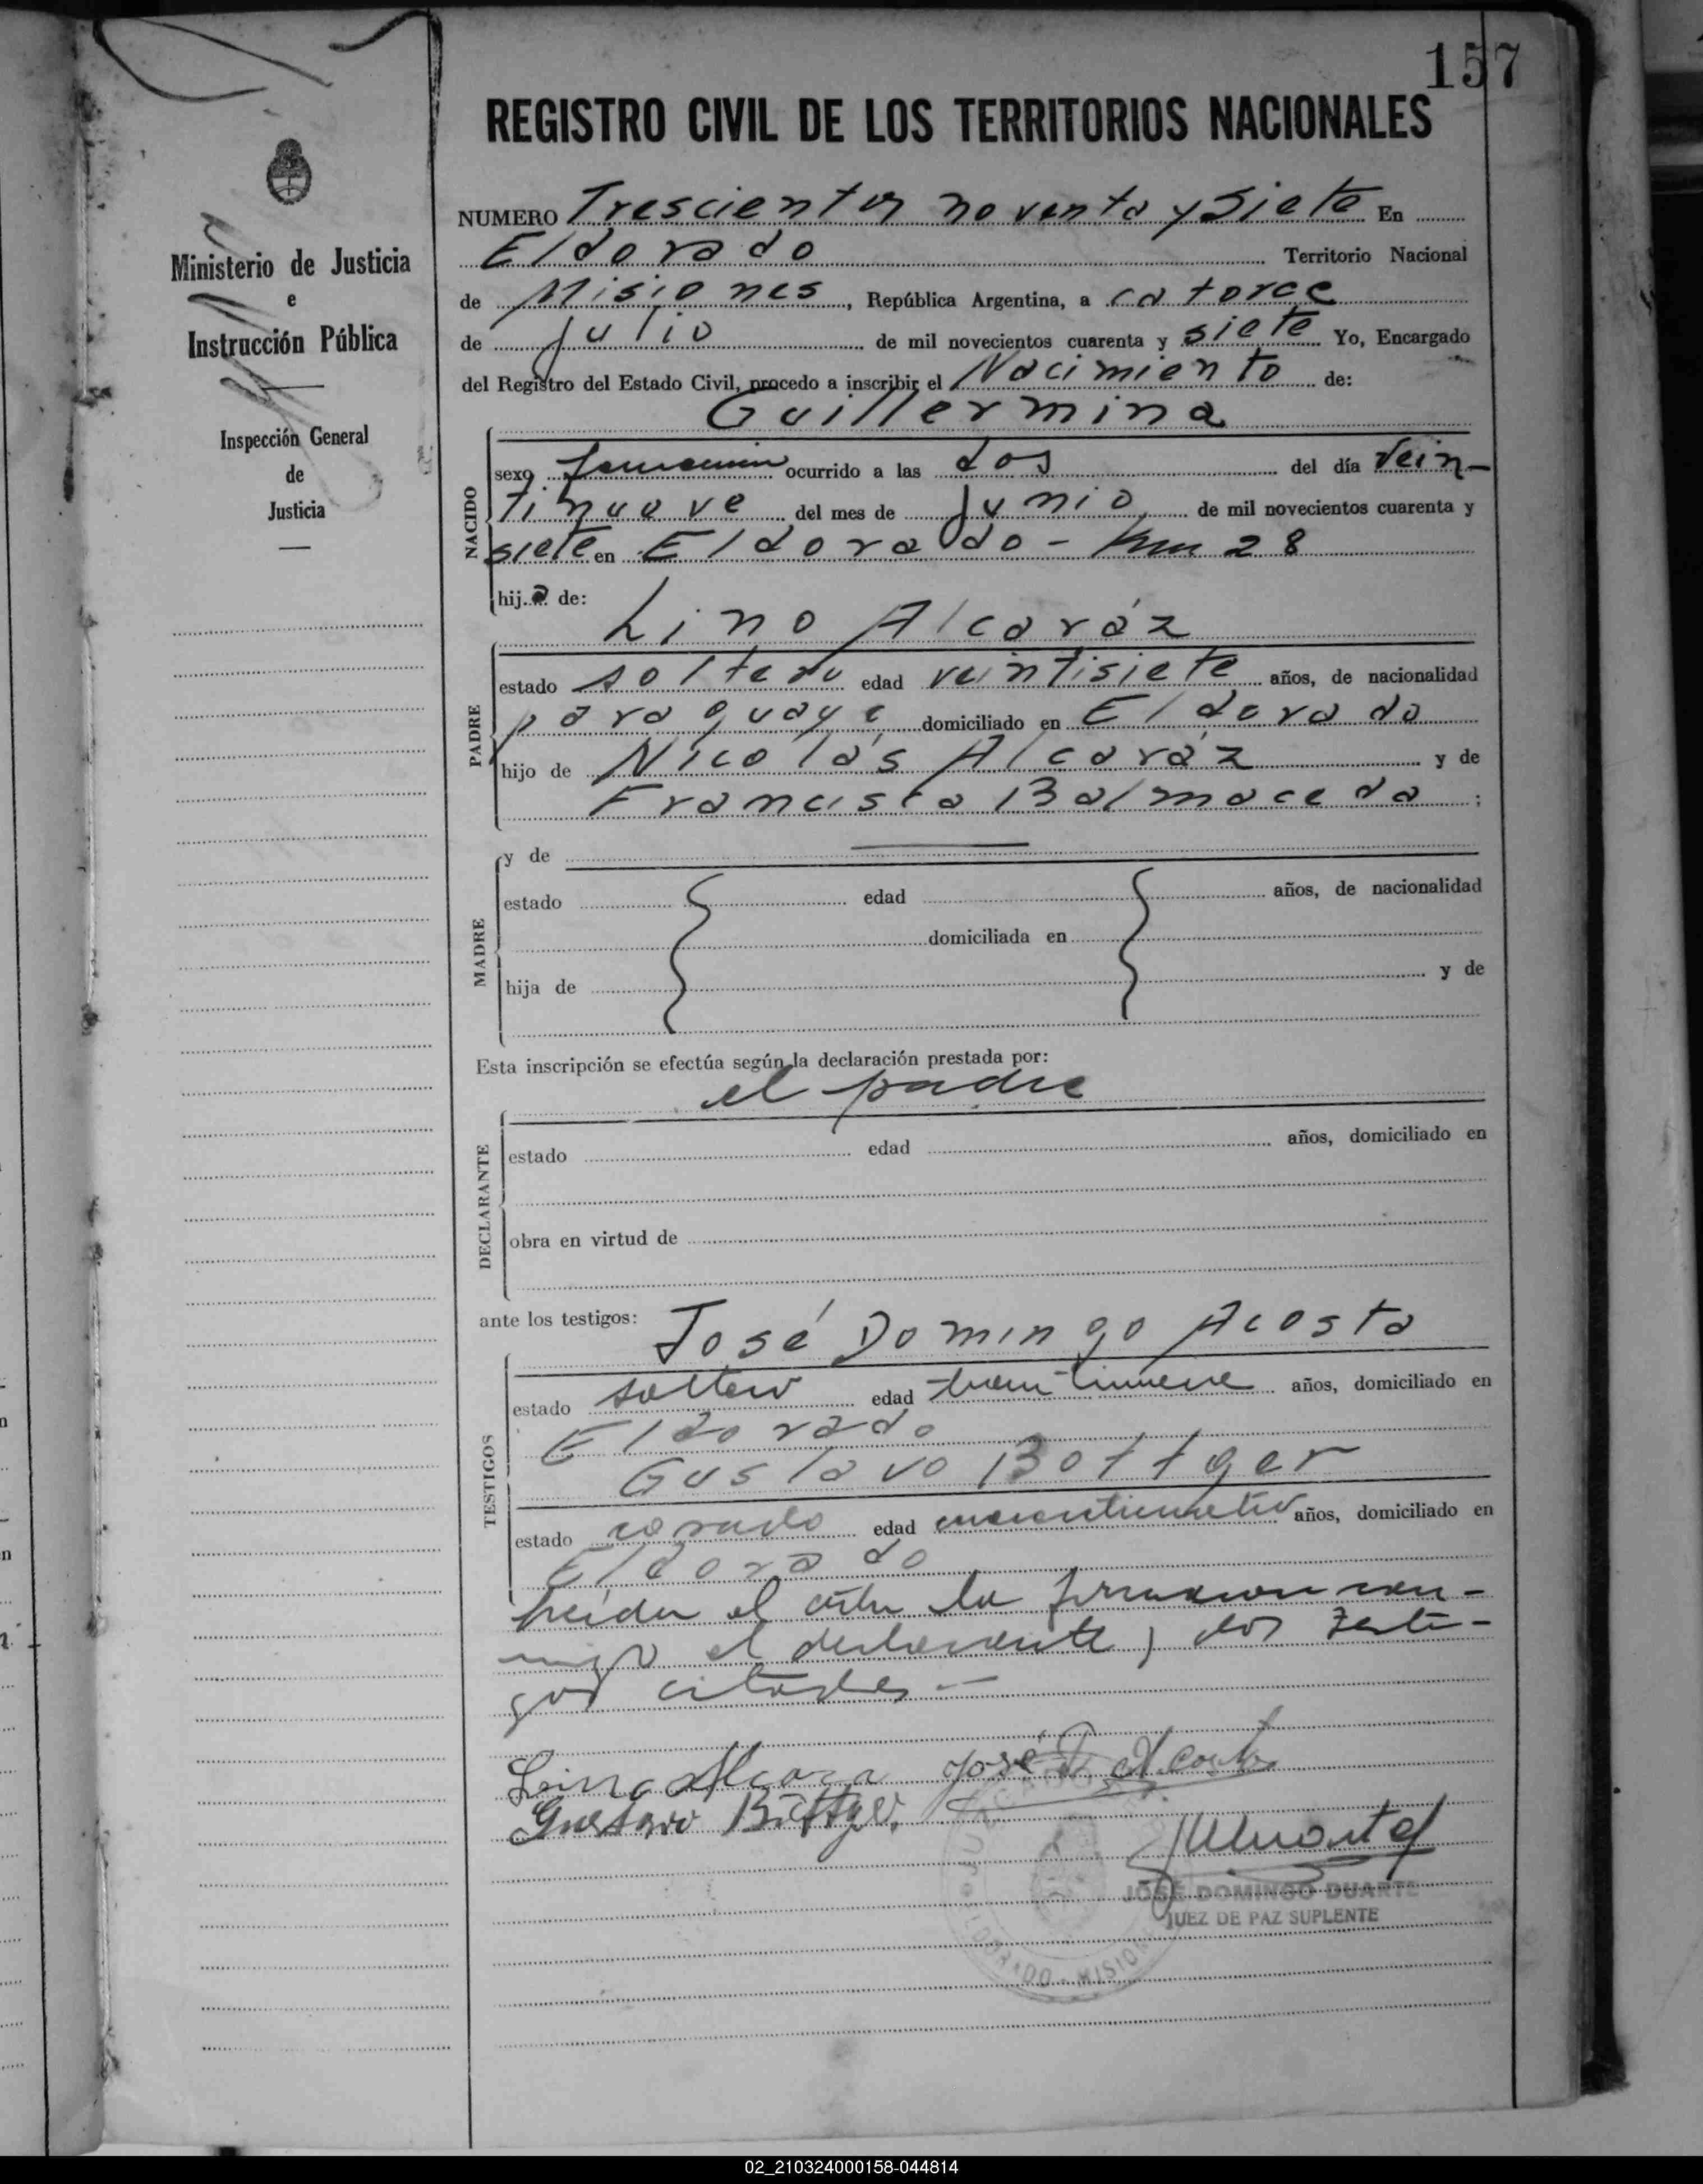 157
REGISTRO CIVIL DE LOS TERRITORIOS NACIONALES
Ministerio de Justicia
e
Instrucción Pública
Inspección General
de
Justicia
NUMERO Trescientos noventa y siete En
Eldorado Territorio Nacional
de Misiones, República Argentina, a catorce
de julio de mil novecientos cuarenta y siete Yo, Encargado
del Registro del Estado Civil, procedo a inscribir el Nacimiento de:
Guillermina
NACIDO
sexo femenino ocurrido a las dos del día vein-
tinueve del mes de Junio de mil novecientos cuarenta y
siete en Eldorado - Km 28
hija de:
Lino Alcaráz
PADRE
estado soltero edad veintisiete años, de nacionalidad
paraguaya domiciliado en Eldorado
hijo de Nicolás Alcaráz y de
Francisca Balmaceda ;
MADRE
y de
estado edad años, de nacionalidad
domiciliada en
hija de y de
Esta inscripción se efectúa según la declaración prestada por:
el padre
DECLARANTE
estado edad años, domiciliado en
obra en virtud de
ante los testigos:
José Domingo Acosta
TESTIGOS
estado soltero edad años, domiciliado en
Eldorado
Gustavo Bottger
estado casado edad años, domiciliado en
Eldorado
Leída el acta la firmaron con-
migo el declarante y los testi-
gos citados.—
Lino Alcaraz José D. Acosta
Gustavo Böttger.
JOSÉ DOMINGO DUARTE
JUEZ DE PAZ SUPLENTE
ELDORADO - MISIONES
02_210324000158-044814